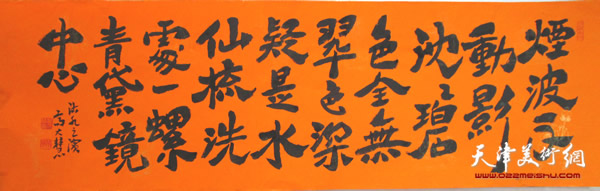 煙波不
動影
沈々碧
色全無
翠色深
疑是水
仙梳洗
處一螺
青黛鏡
中心
天津美術網
www.022meishu.com